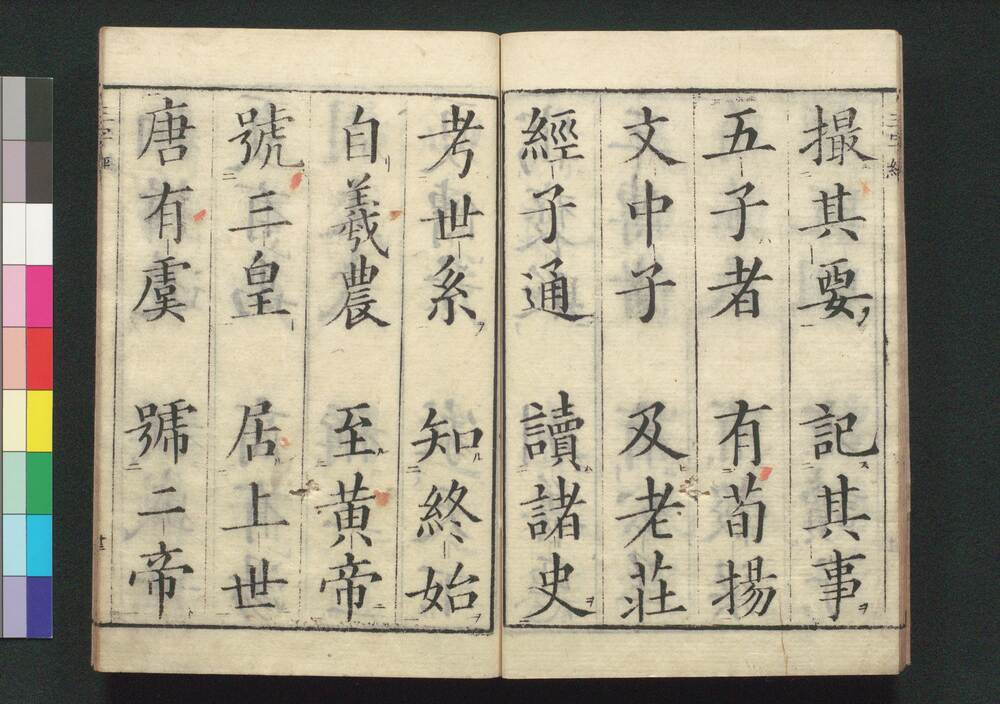 撮其要 記其事
五子者 有荀揚
文中子 及老荘
經子通 讀諸史
考世系 知終始
自羲農 至黄帝
號三皇 居上世
唐有虞 號二帝